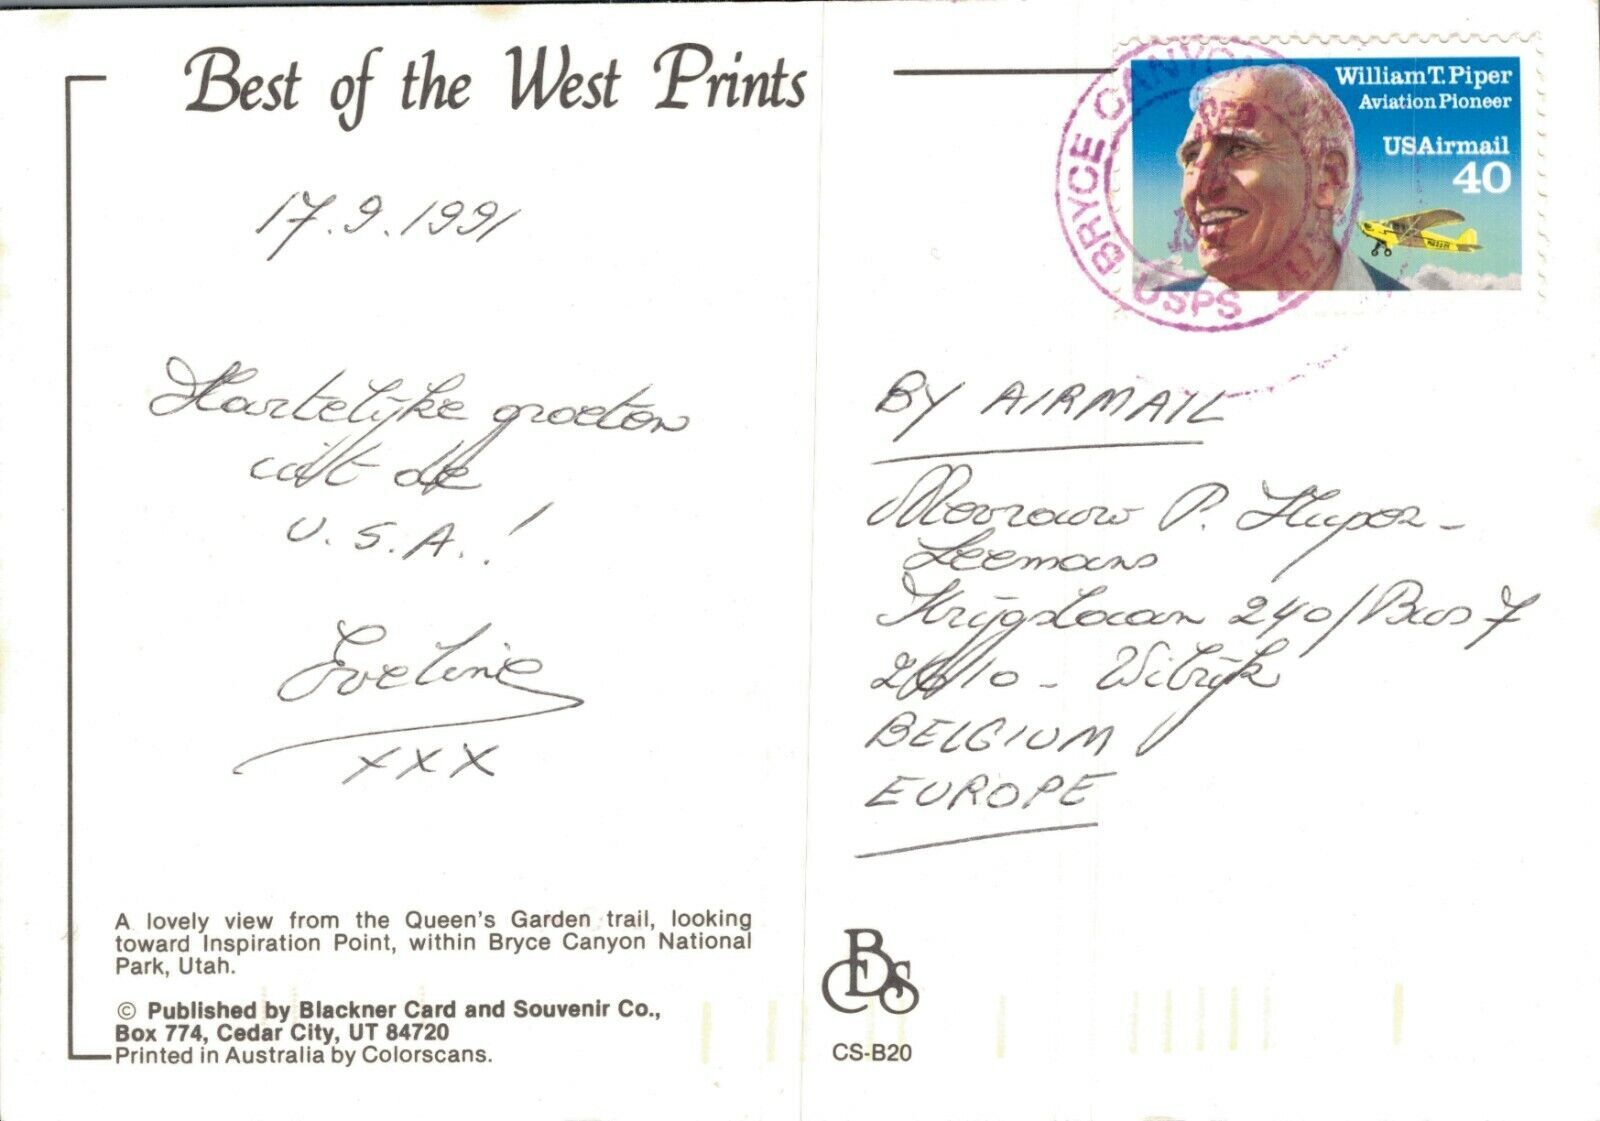 Best of the West Prints
17.9.1991
Hartelijke groeten
uit de
U.S.A.!
Eveline
xxx
A lovely view from the Queen's Garden trail, looking
toward Inspiration Point, within Bryce Canyon National
Park, Utah.
© Published by Blackner Card and Souvenir Co.,
Box 774, Cedar City, UT 84720
Printed in Australia by Colorscans.
BCDS
CS-B20
William T. Piper
Aviation Pioneer
USAirmail
40
BRYCE CANYON
USPS
BY AIRMAIL
Mevrouw P. Kuper-
Leemans
Krijgslaan 240/Bus 7
2610 - Wilrijk
BELGIUM
EUROPE